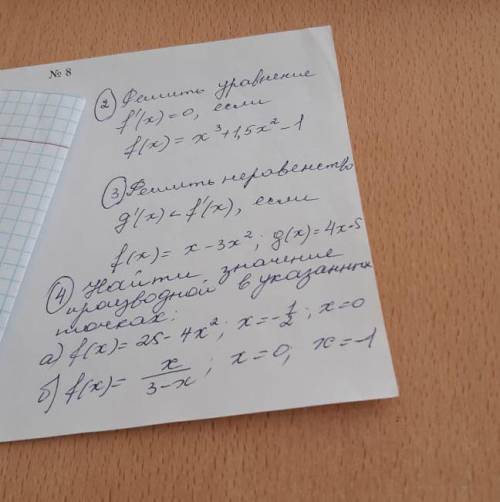 № 8
② Решить уравнение
f'(x)=0, если
f(x)= x³+1,5x²-1
③ Решить неравенство
g'(x)<f'(x), если
f(x)= x-3x²; g(x)=4x-5
④ Найти значение
производной в указанных
точках:
а) f(x)= 25-4x²; x=-1/2; x=0
б) f(x)= x/(3-x); x=0; x=-1